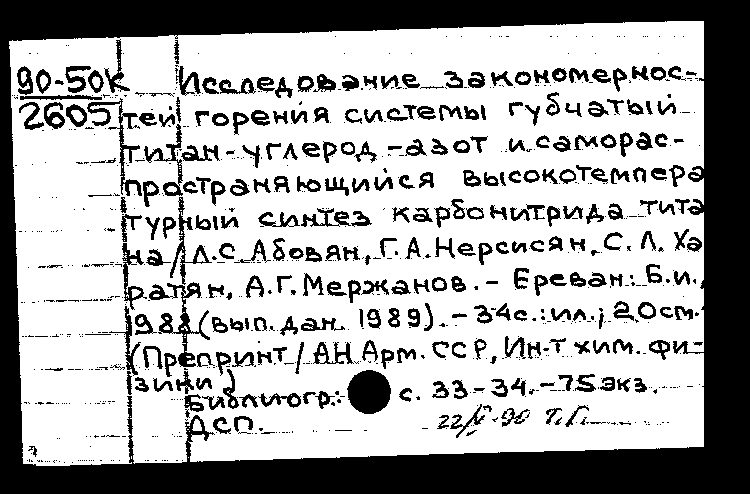 90-50К Исследование закономернос-
2605 тей горения системы губчатый
титан-углерод-азот и саморас-
пространяющийся высокотемпера
турный синтез карбонитрида тита
на / Л.С Абовян, Г.А.Нерсисян, С.Л. Ха
ратян, А.Г. Мержанов. - Ереван: Б.и.,
1988 (вып. дан. 1989). - 34с.: ил.; 20см.
(Препринт / АН Арм. ССР, Ин-т хим. фи-
зики)
Библиогр.: с. 33-34. - 75 экз.
ДСП. 22/V-90 Т.Г.